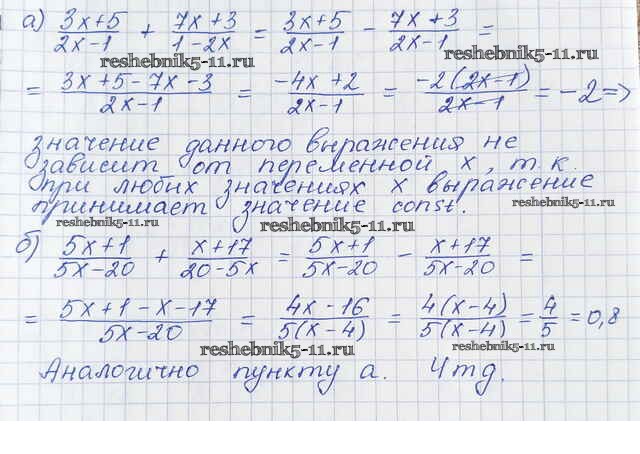 а) (3x+5)/(2x-1) + (7x+3)/(1-2x) = (3x+5)/(2x-1) - (7x+3)/(2x-1) =
reshebnik5-11.ru reshebnik5-11.ru
= (3x+5-7x-3)/(2x-1) = (-4x+2)/(2x-1) = (-2(2x-1))/(2x-1) = -2 =>
значение данного выражения не
зависит от переменной x, т.к.
при любых значениях x выражение
принимает значение const.
reshebnik5-11.ru reshebnik5-11.ru reshebnik5-11.ru
б) (5x+1)/(5x-20) + (x+17)/(20-5x) = (5x+1)/(5x-20) - (x+17)/(5x-20) =
= (5x+1-x-17)/(5x-20) = (4x-16)/(5(x-4)) = (4(x-4))/(5(x-4)) = 4/5 = 0,8
reshebnik5-11.ru reshebnik5-11.ru
Аналогично пункту а. Чтд.